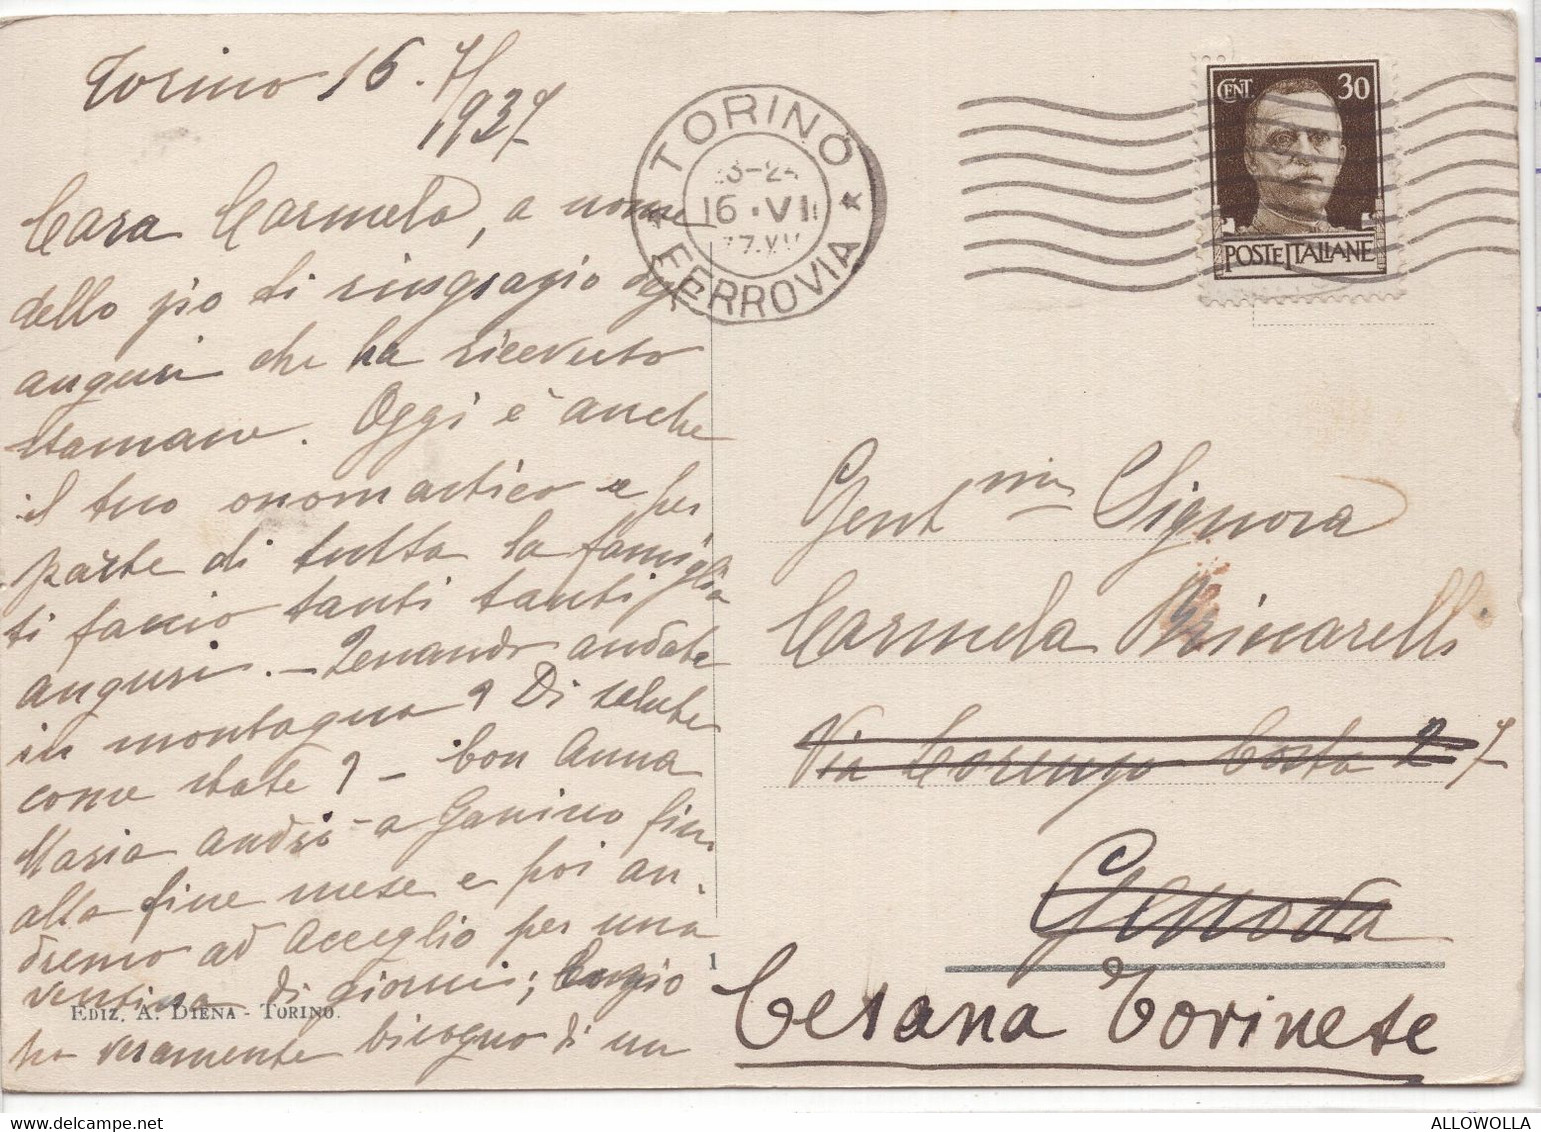 Torino 16. 7/
1937
Cara Carmela, a nome
dello zio ti ringrazio degli
auguri che ha ricevuto
stamane. Oggi è anche
il tuo onomastico e per
parte di tutta la famiglia
ti faccio tanti tanti
auguri. - Quando andate
in montagna? Di salute
come state? - Con Anna
Maria andrò a Ganino fin
alla fine mese e poi an-
dremo ad Acceglio per una
ventina di giorni;
ha veramente bisogno di un
EDIZ. A. DIENA - TORINO.
1
TORINO
23-24
16.VII
37.XV
FERROVIA
CENT 30
POSTE ITALIANE
Gent.ma Signora
Carmela
Via Costa 2-7
Genova
Cesana Torinese
ALLOWOLLA